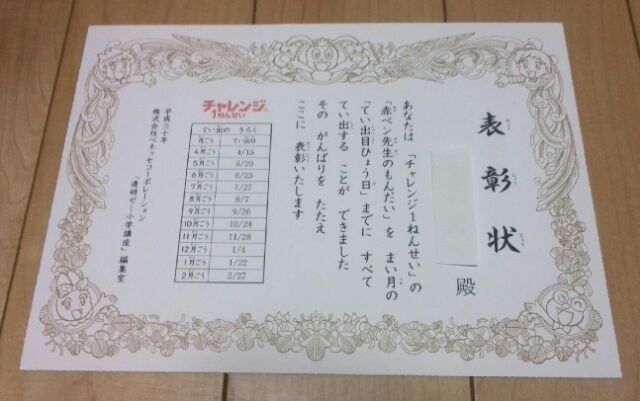 表彰状
殿
あなたは 「チャレンジ1ねんせい」の
「赤ペン先生のもんだい」を まい月の
「てい出目ひょう日」までに すべて
てい出する ことが できました
その がんばりを たたえ
ここに 表彰いたします
チャレンジ
1ねんせい
てい出の きろく
月ごう てい出日
4月ごう 4/15
5月ごう 5/29
6月ごう 6/23
7月ごう 7/27
8月ごう 8/7
9月ごう 9/26
10月ごう 10/24
11月ごう 11/28
12月ごう 1/4
1月ごう 1/22
2月ごう 2/27
平成三十年
株式会社ベネッセコーポレーション
「進研ゼミ小学講座」編集室